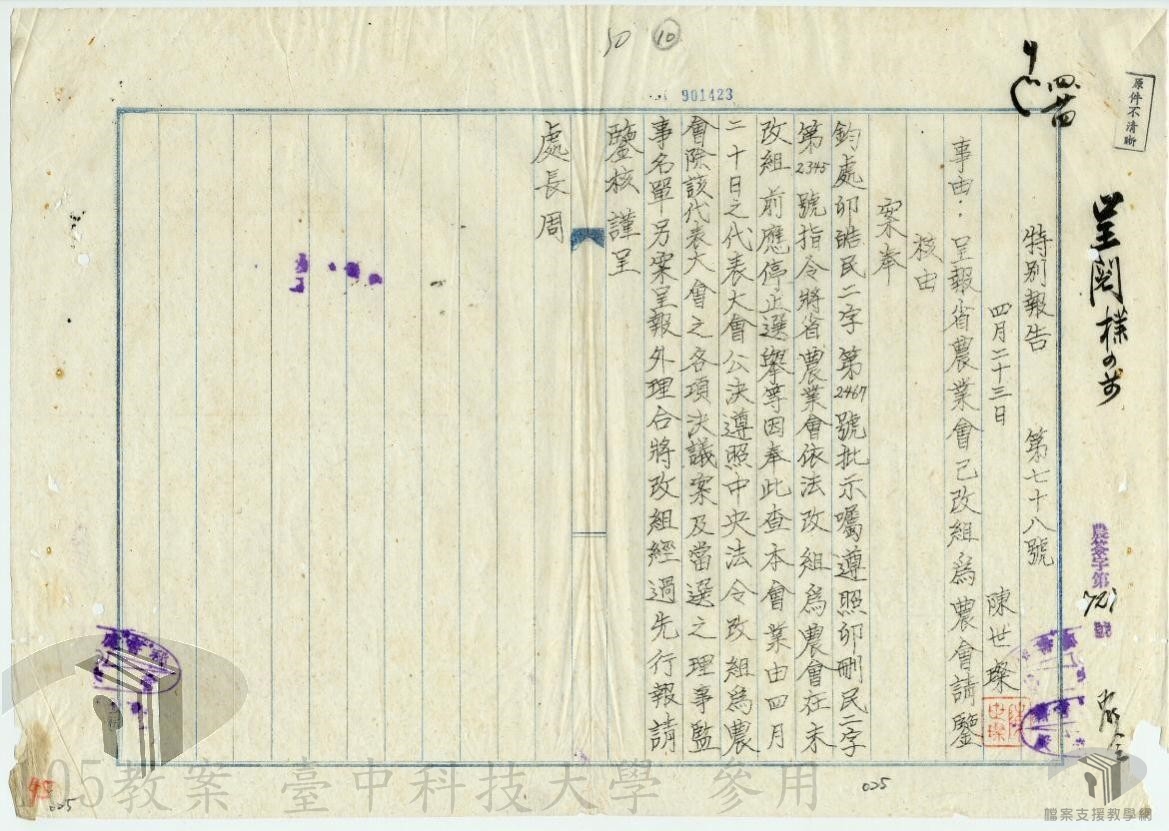 50 ⑩
901423
原件不清晰
四廿四
呈閱
農簽字第721號
特別報告 第七十八號
四月二十三日 陳世璨
事由：呈報省農業會已改組為農會請鑒
核由
案奉
鈞處卯皓民二字第2467號批示囑遵照卯刪民二字
第2345號指令將省農業會依法改組為農會在未
改組前應停止選舉等因奉此查本會業由四月
二十日之代表大會公決遵照中央法令改組為農
會除該代表大會之各項決議案及當選之理事監
事名單另案呈報外理合將改組經過先行報請
鑒核 謹呈
處長周
025
45
025
105教案 臺中科技大學 參用
檔案支援教學網